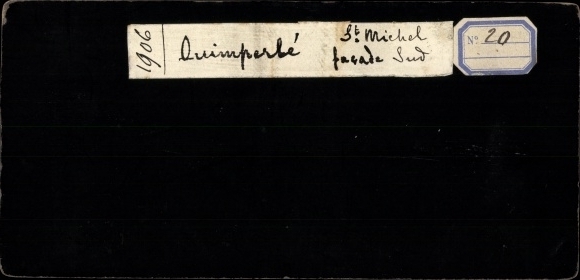 1906
Quimperlé
St Michel
façade Sud
No 20